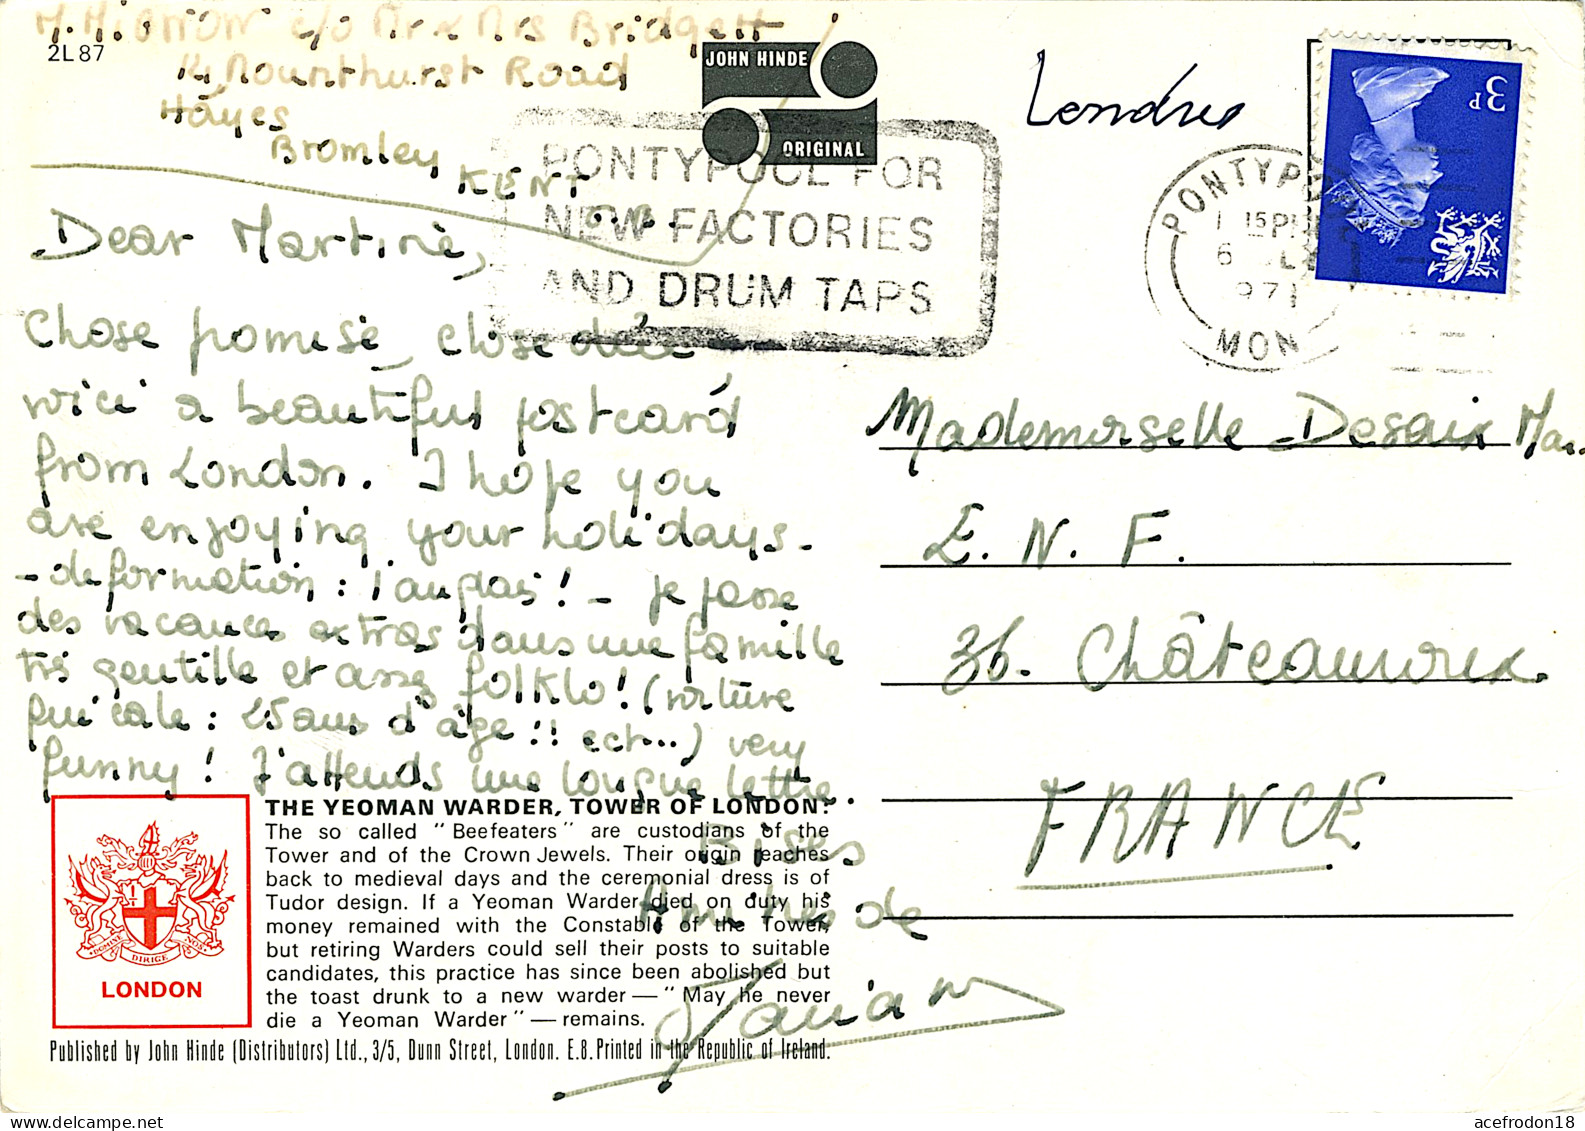 M. MIGNON c/o Mr & Mrs Bridgett
2L87
14 Mounthurst Road
Hayes
Bromley
KENT
G.B.
JOHN HINDE
ORIGINAL
Londres
3P
PONTYPOOL FOR
NEW FACTORIES
AND DRUM TAPS
PONTYP
15 PM
6
971
MON
Dear Martine,
Chose promise, chose dûe
voici a beautiful postcard
from London. I hope you
are enjoying your holidays.
- deformation: l'anglais! - je passe
des vacances extras dans une famille
très gentille et assez folklo! (voiture
qui cale: 25 ans d'âge!! ect...) very
funny! J'attends une longue lettre.
Bises
Amitiés de
Marian
Mademoiselle Desaix Mar.
E. N. F.
36. Châteauroux.
FRANCE
THE YEOMAN WARDER, TOWER OF LONDON:
The so called "Beefeaters" are custodians of the
Tower and of the Crown Jewels. Their origin reaches
back to medieval days and the ceremonial dress is of
Tudor design. If a Yeoman Warder died on duty his
money remained with the Constable of the Tower,
but retiring Warders could sell their posts to suitable
candidates, this practice has since been abolished but
the toast drunk to a new warder — "May he never
die a Yeoman Warder" — remains.
DOMINE DIRIGE NOS
LONDON
Published by John Hinde (Distributors) Ltd., 3/5, Dunn Street, London. E.8. Printed in the Republic of Ireland.
acefrodon18